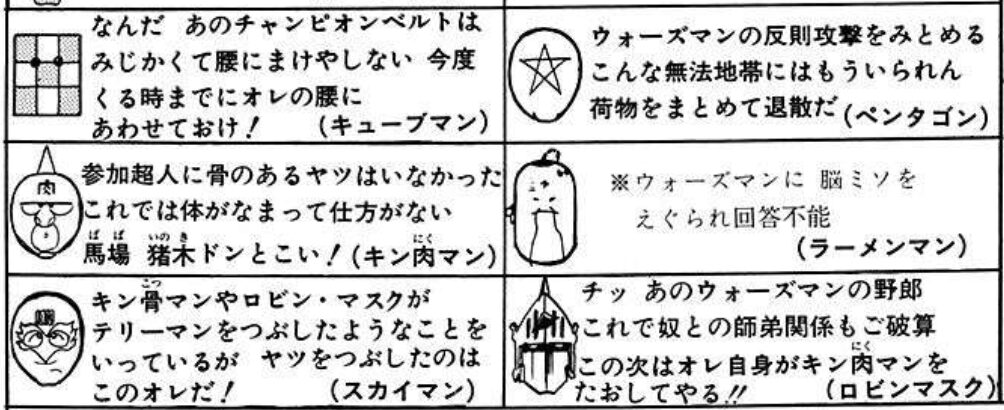 なんだ あのチャンピオンベルトは
みじかくて腰にまけやしない 今度
くる時までにオレの腰に
あわせておけ! (キューブマン)
ウォーズマンの反則攻撃をみとめる
こんな無法地帯にはもういられん
荷物をまとめて退散だ (ペンタゴン)
肉
参加超人に骨のあるヤツはいなかった
これでは体がなまって仕方がない
馬場 猪木ドンとこい! (キン肉マン)
ばば いのき にく
※ウォーズマンに 脳ミソを
えぐられ回答不能
(ラーメンマン)
キン骨マンやロビン・マスクが
こつ
テリーマンをつぶしたようなことを
いっているが ヤツをつぶしたのは
このオレだ! (スカイマン)
チッ あのウォーズマンの野郎
これで奴との師弟関係もご破算
この次はオレ自身がキン肉マンを
にく
たおしてやる!! (ロビンマスク)